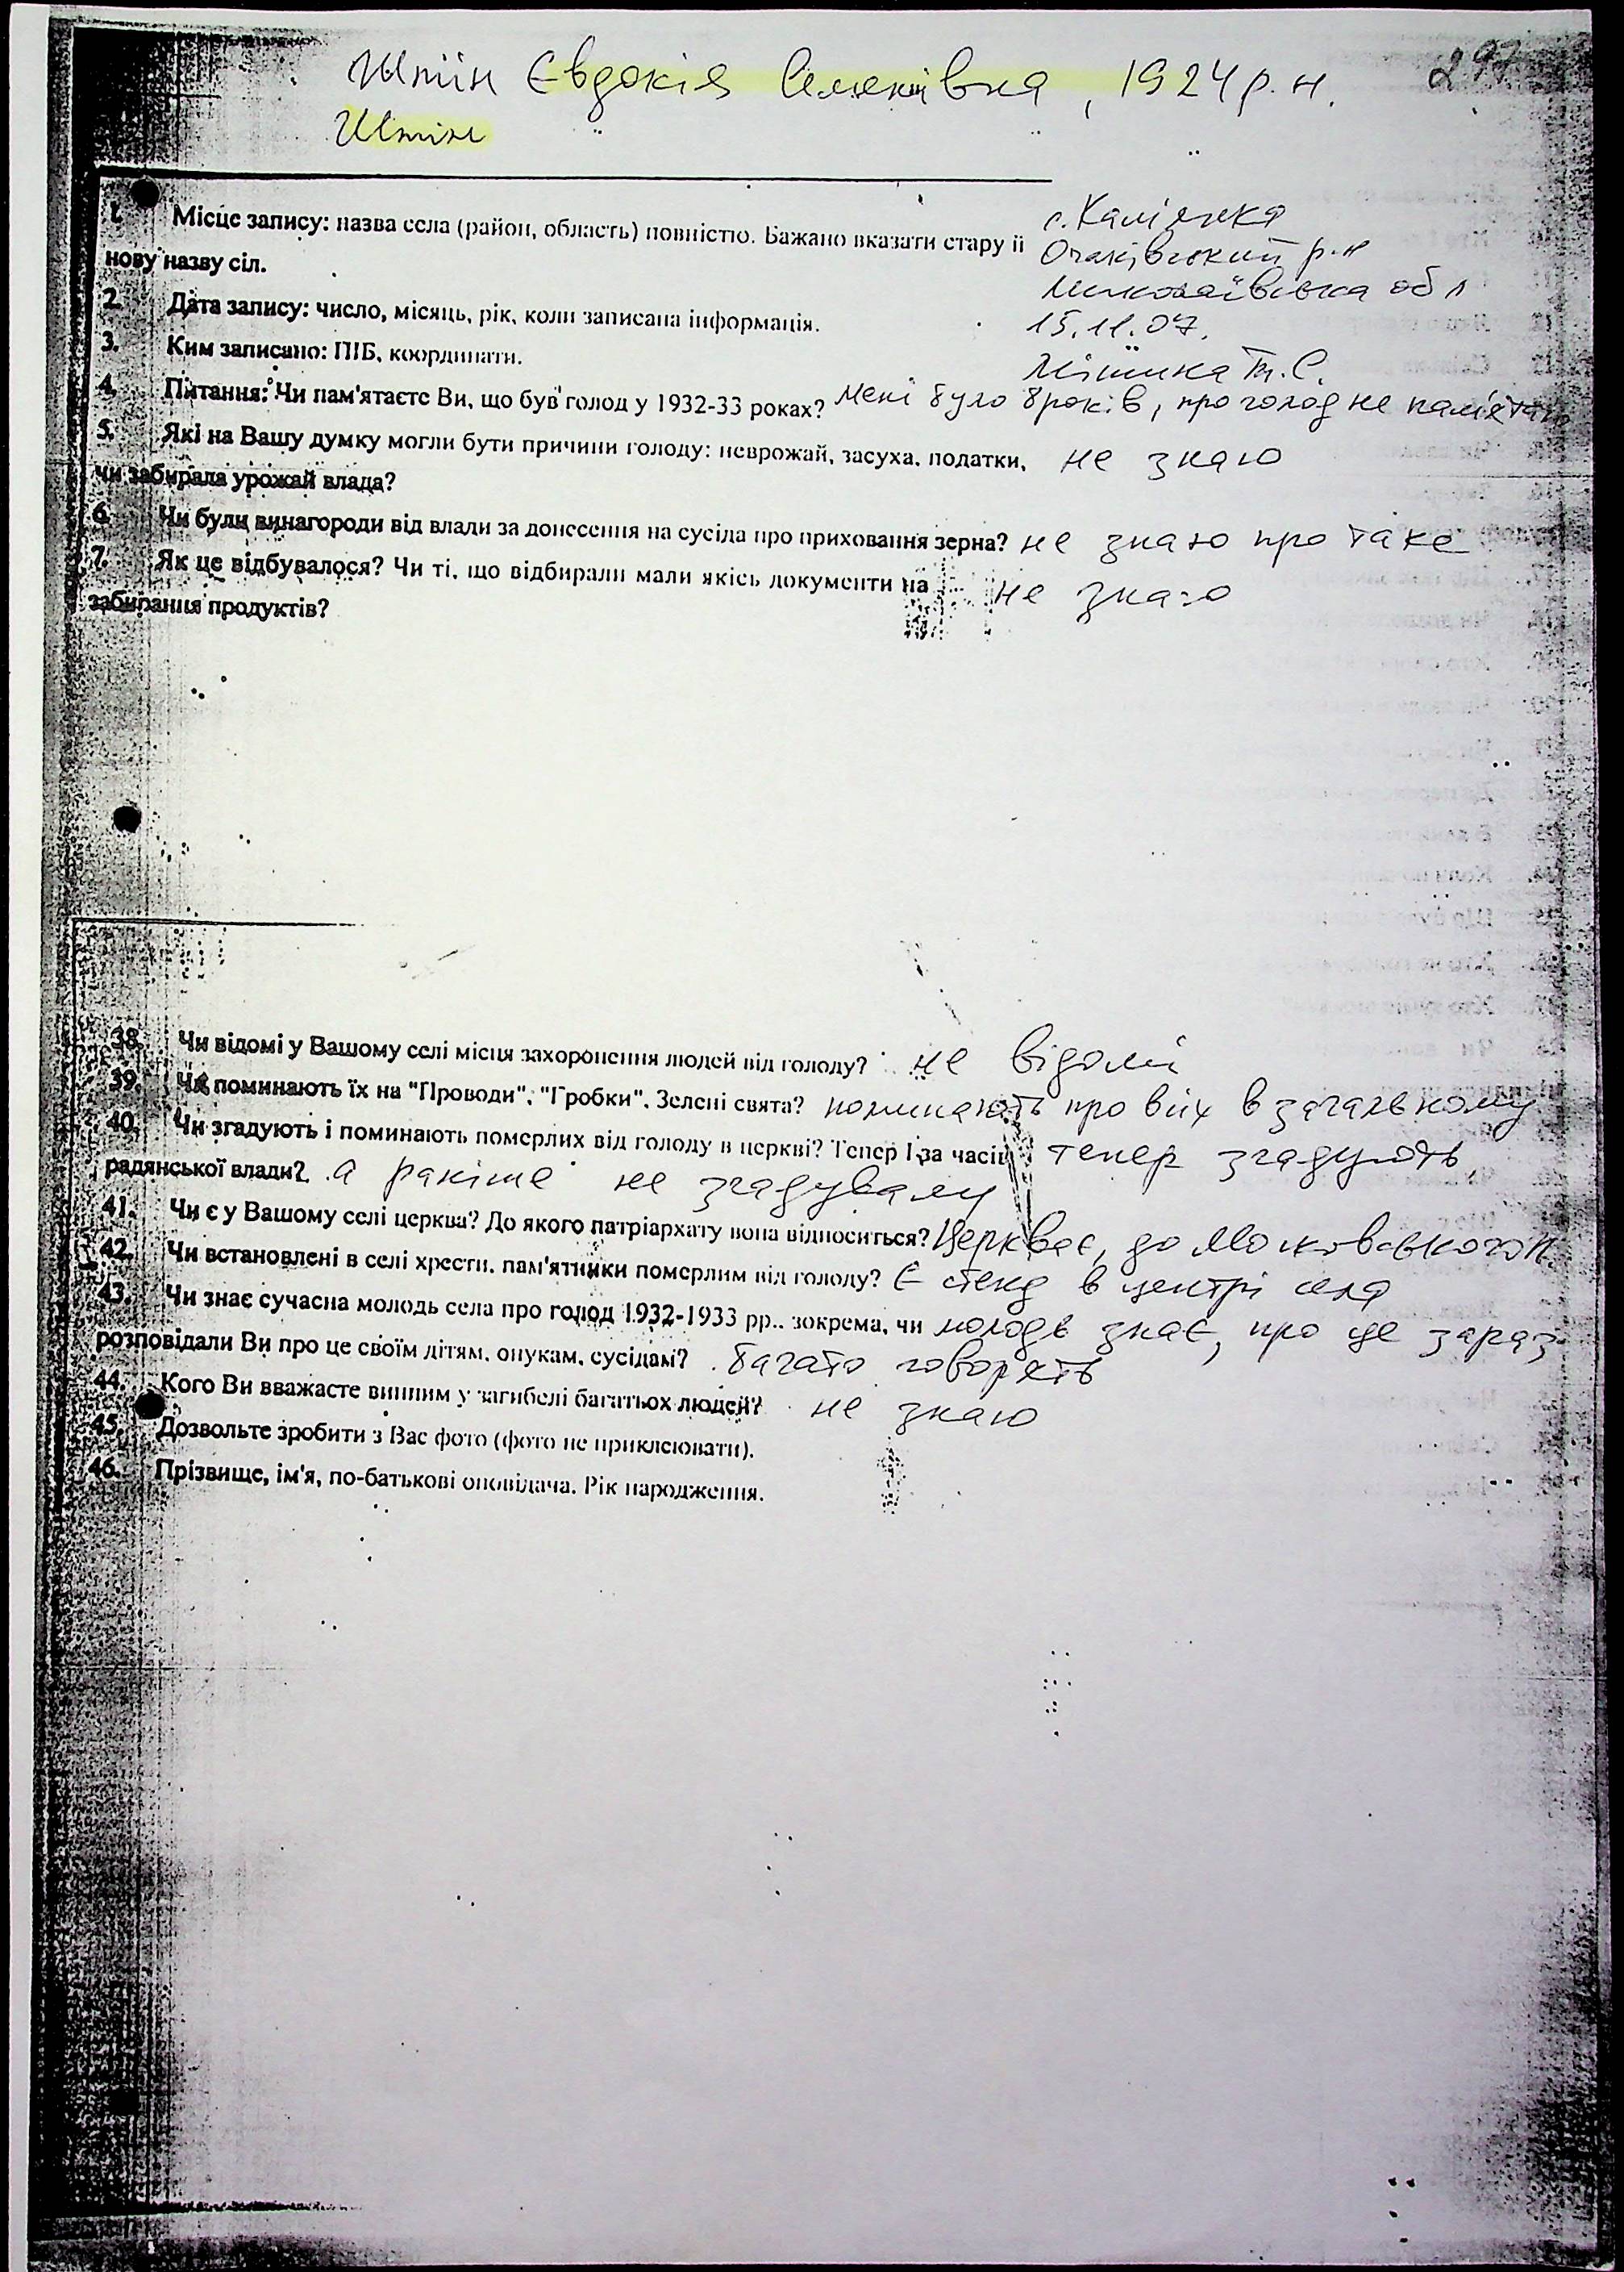 Штін Євдокія Семенівна, 1924 р. н. 297
Штін
1. Місце запису: назва села (район, область) повністю. Бажано вказати стару й с. Кам'янка
нову назву сіл. Очаківський р-н
Миколаївська обл
2. Дата запису: число, місяць, рік, коли записана інформація. 15.11.07.
3. Ким записано: ПІБ, координати. Т.С.
4. Питання: Чи пам'ятаєте Ви, що був голод у 1932-33 роках? Мені було 8 років, про голод не пам'ятаю
5. Які на Вашу думку могли бути причини голоду: неврожай, засуха, податки, не знаю
чи забирала урожай влада?
6. Чи були винагороди від влади за донесення на сусіда про приховання зерна? не знаю про таке
7. Як це відбувалося? Чи ті, що відбирали мали якісь документи на не знаю
забирання продуктів?
38. Чи відомі у Вашому селі місця захоронення людей від голоду? не відомі
39. Чи поминають їх на "Проводи", "Гробки", Зелені свята? поминають про всіх в загальному
40. Чи згадують і поминають померлих від голоду в церкві? Тепер і за часів тепер згадують,
радянської влади? а раніше не згадували
41. Чи є у Вашому селі церква? До якого патріархату вона відноситься? Церква є, до Московського п.
42. Чи встановлені в селі хрести, пам'ятники померлим від голоду? Є стенд в центрі села
43. Чи знає сучасна молодь села про голод 1932-1933 рр., зокрема, чи молодь знає, про це зараз
розповідали Ви про це своїм дітям, онукам, сусідам? багато говорять
44. Кого Ви вважаєте винним у загибелі багатьох людей? не знаю
45. Дозвольте зробити з Вас фото (фото не приклеювати).
46. Прізвище, ім'я, по-батькові оповідача. Рік народження.